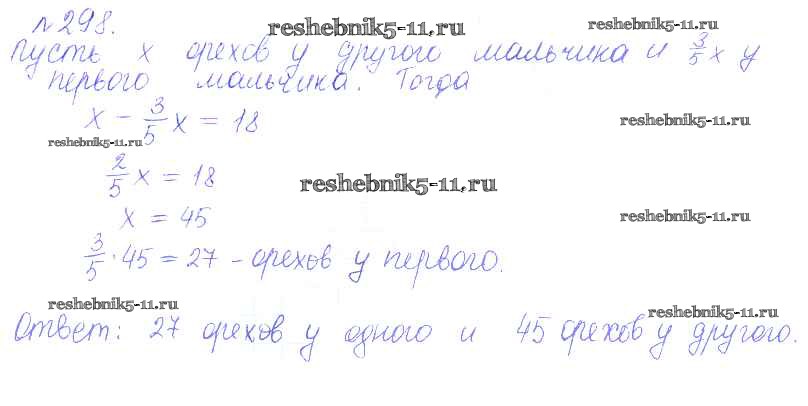 №298.
reshebnik5-11.ru
reshebnik5-11.ru
Пусть x орехов у другого мальчика и 3/5 x у
первого мальчика. Тогда
x - 3/5 x = 18
reshebnik5-11.ru
reshebnik5-11.ru
2/5 x = 18
reshebnik5-11.ru
x = 45
reshebnik5-11.ru
3/5 · 45 = 27 - орехов у первого.
reshebnik5-11.ru
reshebnik5-11.ru
Ответ: 27 орехов у одного и 45 орехов у другого.